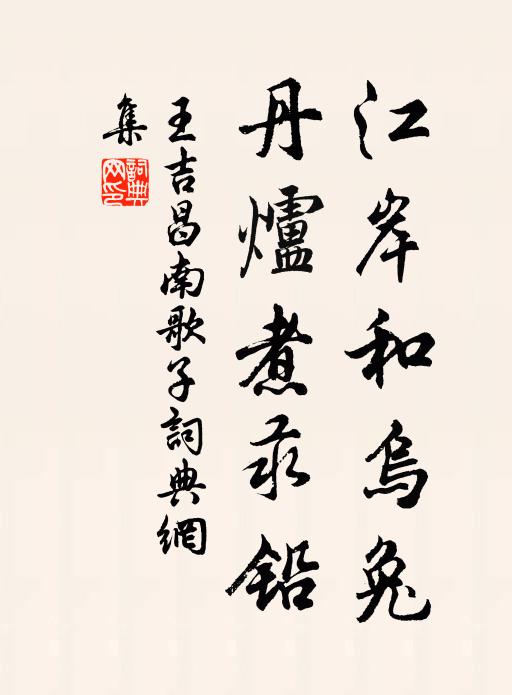 江岸和烏兔
丹爐煮汞鉛
王吉昌南歌子詞典網
集
詞典網印